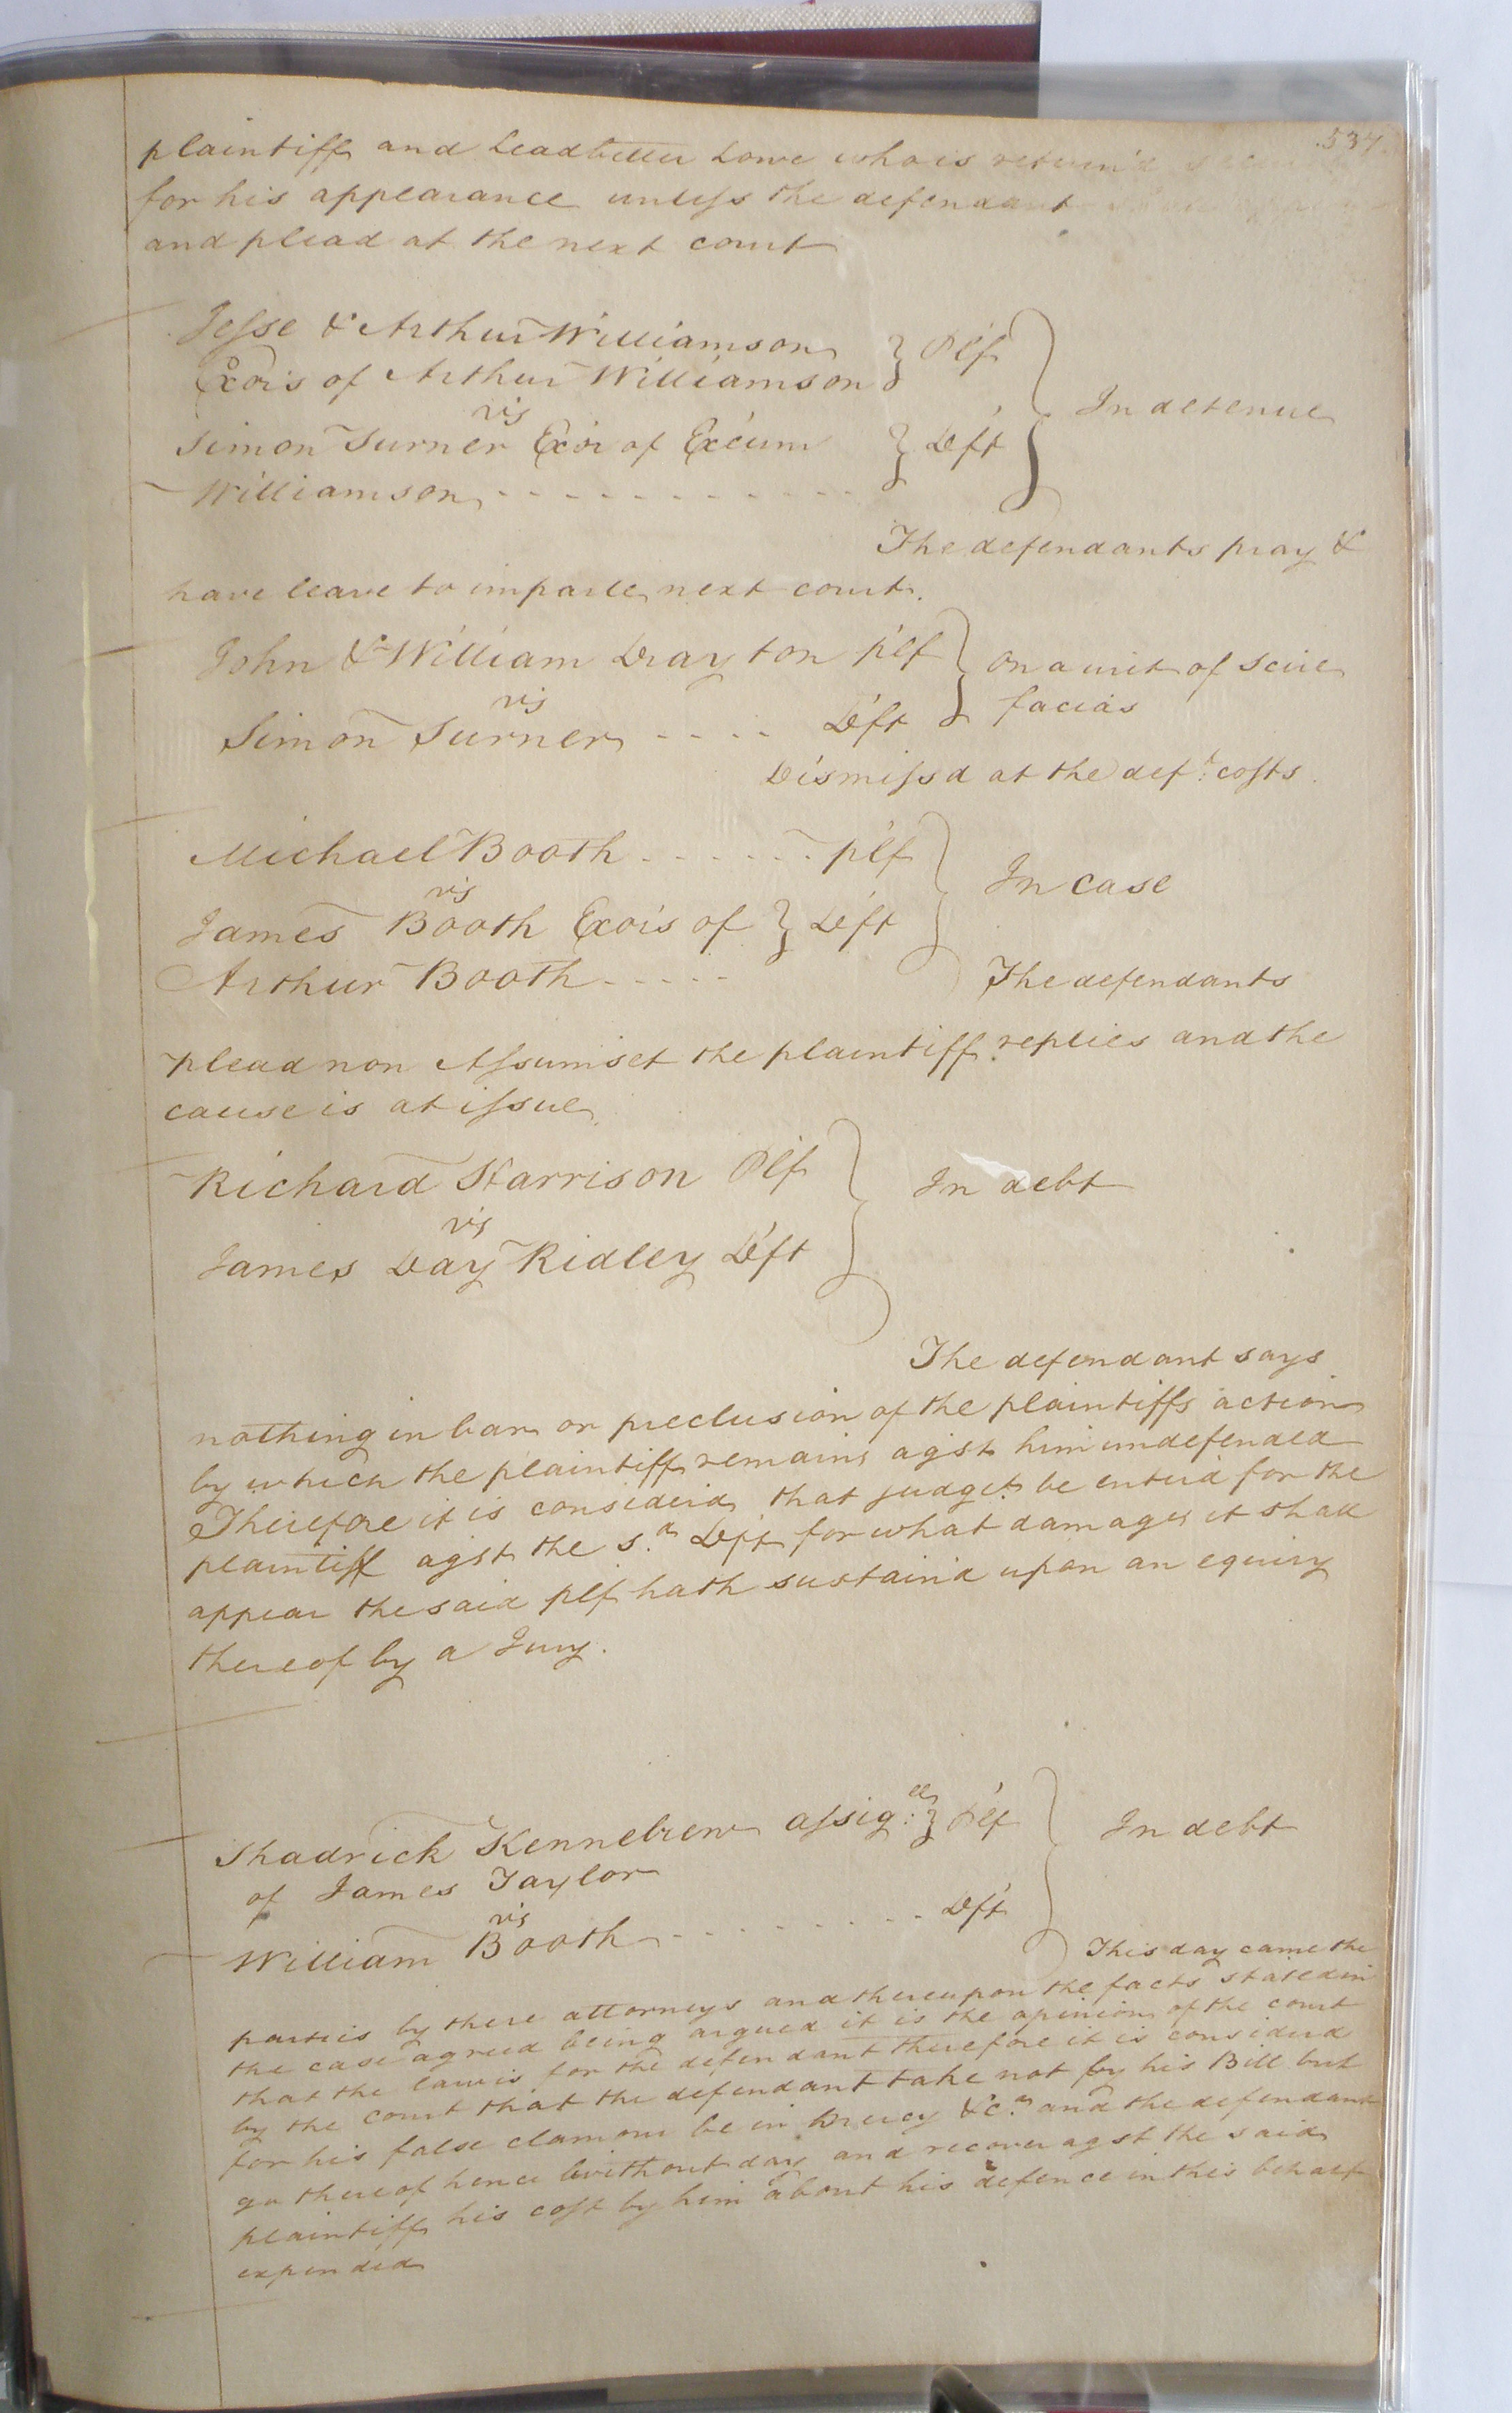 537
plaintiff and Leadbetter Lowe who is return'd
for his appearance unless the defendant
and plead at the next court
Jesse & Arthur Williamson } Plf
Exors of Arthur Williamson
vs } In detenue
Simon Turner Exor of Exum } Deft
Williamson - - - - - - - - - - -
The defendants pray &
have leave to imparle next court.
John & William Drayton plf } on a writ of Scire
vs facias
Simon Turner - - - - Deft
Dismissd at the deft. costs.
Michael Booth - - - - - - plf } In case
vs
James Booth Exors of } Deft
Arthur Booth - - - - -
The defendants
plead non Assumset the plaintiff replies and the
cause is at issue
Richard Harrison Plf } In debt
vs
James Day Ridley Deft
The defendant says
nothing in bar or preclusion of the plaintiffs action
by which the plaintiff remains agist him undefended
Therefore it is considerd that judgt. be enterd for the
plaintiff agst the s.d Deft for what damages it shall
appear the said plf hath sustain'd upon an equiry
thereof by a Jury.
Shadrick Kennebrew assig:ee } Plf } In debt
of James Taylor
vs
William Booth - - - - - - - - Deft
This day came the
parteis by there attorneys and thereupon the facts stated in
the case agreed being argued it is the opinion of the court
that the law is for the defendant therefore it is considerd
by the court that the defendant take not by his Bill but
for his false clamour be in Mercy &c.a and the defendant
go thereof hence without day and recover agst the said
plaintiff his cost by him about his defence in this behalf
expended